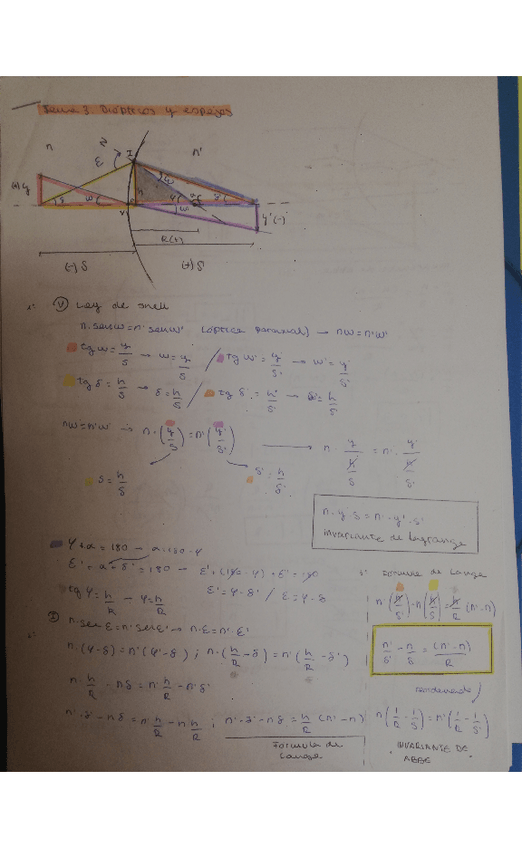 Tema 3. Dióptricos y espejos
n
N
n'
ε
I
(+) y
h
w
V
w'
y'(-)
R(+)
(-) S
(+) S'
Ⓥ Ley de snell
n·sen w = n'·sen w' (óptica paraxial) → nw = n'w'
tg w = y/S → w = y/S
tg w' = y'/S' → w' = y'/S'
tg δ = h/S → δ = h/S
tg δ' = h/S' → δ' = h/S'
nw = n'w' → n·(y/S) = n'(y'/S')
n · y/(h/δ) = n' · y'/(h/δ')
S = h/δ
S' = h/δ'
n·y·δ = n'·y'·δ'
invariante de Lagrange
φ + α = 180 → α = 180 - φ
ε' + α + δ' = 180 → ε' + (180 - φ) + δ' = 180
ε' = φ - δ' / ε = φ - δ
tg φ = h/R → φ = h/R
Ⓘ
n·sen ε = n'·sen ε' → n·ε = n'·ε'
n·(φ-δ) = n'(φ-δ') ; n·(h/R - δ) = n'(h/R - δ')
n·h/R - nδ = n'·h/R - n'·δ'
n'·δ' - nδ = n'·h/R - n·h/R ; n'·δ' - nδ = h/R (n' - n)
Formula de Lange
Formula de Lange
n'·(h/S') - n(h/S) = h/R (n' - n)
n'/S' - n/S = (n' - n)/R
reordenando
n(1/R - 1/S) = n'(1/R - 1/S')
INVARIANTE DE
ABBE